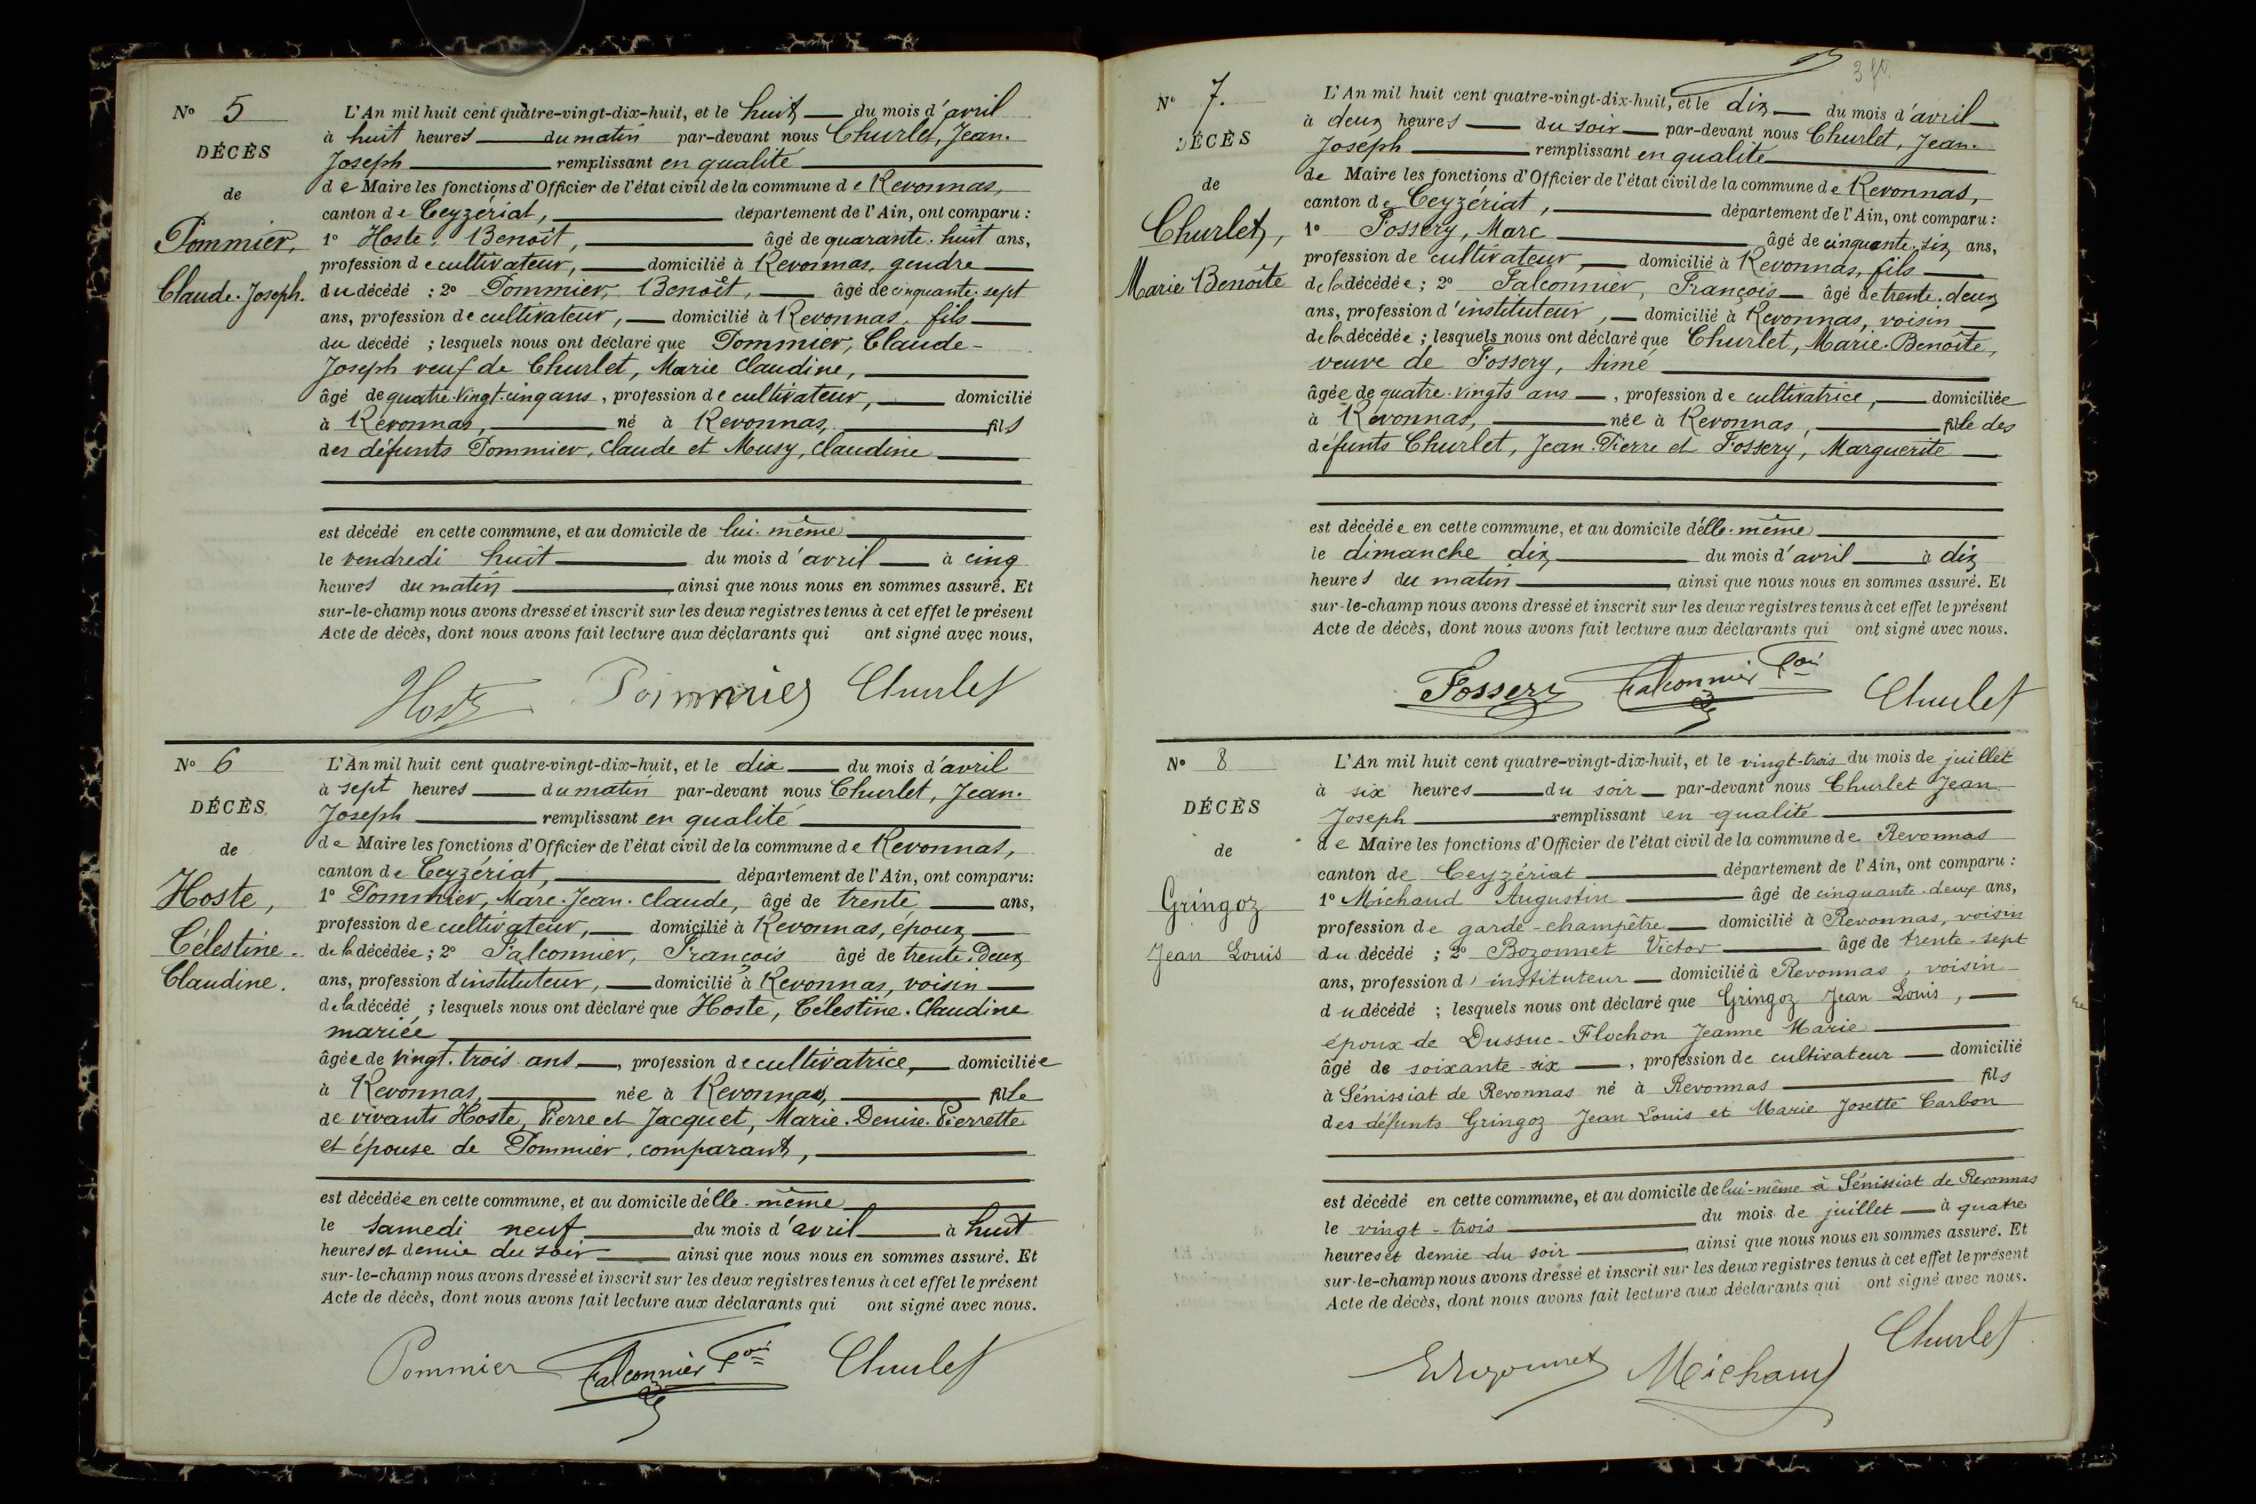 N° 5
DÉCÈS
de
Pommier,
Claude-Joseph.
L'An mil huit cent quatre-vingt-dix-huit, et le huit du mois d'avril
à huit heures du matin par-devant nous Churlet, Jean-
Joseph remplissant en qualité
de Maire les fonctions d'Officier de l'état civil de la commune de Revonnas,
canton de Ceyzériat, département de l'Ain, ont comparu :
1° Hoste, Benoît, âgé de quarante-huit ans,
profession de cultivateur, domicilié à Revonnas, gendre
du décédé ; 2° Pommier, Benoît, âgé de cinquante-sept
ans, profession de cultivateur, domicilié à Revonnas, fils
du décédé ; lesquels nous ont déclaré que Pommier, Claude-
Joseph veuf de Churlet, Marie Claudine,
âgé de quatre-vingt-cinq ans, profession de cultivateur, domicilié
à Revonnas, né à Revonnas, fils
des défunts Pommier, Claude et Musy, Claudine
est décédé en cette commune, et au domicile de lui-même
le vendredi huit du mois d'avril à cinq
heures du matin ainsi que nous nous en sommes assuré. Et
sur-le-champ nous avons dressé et inscrit sur les deux registres tenus à cet effet le présent
Acte de décès, dont nous avons fait lecture aux déclarants qui ont signé avec nous,
Hoste Pommier Churlet
N° 6
DÉCÈS
de
Hoste,
Célestine-
Claudine.
L'An mil huit cent quatre-vingt-dix-huit, et le dix du mois d'avril
à sept heures du matin par-devant nous Churlet, Jean-
Joseph remplissant en qualité
de Maire les fonctions d'Officier de l'état civil de la commune de Revonnas,
canton de Ceyzériat, département de l'Ain, ont comparu :
1° Pommier, Marc-Jean-Claude, âgé de trente ans,
profession de cultivateur, domicilié à Revonnas, époux
de la décédée ; 2° Falconnier, François âgé de trente-deux
ans, profession d'instituteur, domicilié à Revonnas, voisin
de la décédé ; lesquels nous ont déclaré que Hoste, Célestine-Claudine
mariée
âgée de vingt-trois ans, profession de cultivatrice, domiciliée
à Revonnas, née à Revonnas, fille
de vivants Hoste, Pierre et Jacquet, Marie-Denise-Pierrette
et épouse de Pommier, comparant,
est décédée en cette commune, et au domicile d'elle-même
le samedi neuf du mois d'avril à huit
heures et demie du soir ainsi que nous nous en sommes assuré. Et
sur-le-champ nous avons dressé et inscrit sur les deux registres tenus à cet effet le présent
Acte de décès, dont nous avons fait lecture aux déclarants qui ont signé avec nous.
Pommier Falconnier Fois Churlet
N° 7.
DÉCÈS
de
Churlet,
Marie Benoîte
L'An mil huit cent quatre-vingt-dix-huit, et le dix du mois d'avril
à deux heures du soir par-devant nous Churlet, Jean-
Joseph remplissant en qualité
de Maire les fonctions d'Officier de l'état civil de la commune de Revonnas,
canton de Ceyzériat, département de l'Ain, ont comparu :
1° Fossery, Marc âgé de cinquante-six ans,
profession de cultivateur, domicilié à Revonnas, fils
de la décédée ; 2° Falconnier, François âgé de trente-deux
ans, profession d'instituteur, domicilié à Revonnas, voisin
de la décédée ; lesquels nous ont déclaré que Churlet, Marie-Benoîte,
veuve de Fossery, Aimé
âgée de quatre-vingts ans, profession de cultivatrice, domiciliée
à Revonnas, née à Revonnas, fille des
défunts Churlet, Jean-Pierre et Fossery, Marguerite
est décédée en cette commune, et au domicile d'elle-même
le dimanche dix du mois d'avril à dix
heures du matin ainsi que nous nous en sommes assuré. Et
sur-le-champ nous avons dressé et inscrit sur les deux registres tenus à cet effet le présent
Acte de décès, dont nous avons fait lecture aux déclarants qui ont signé avec nous.
Fossery Falconnier Fois Churlet
N° 8
DÉCÈS
de
Gringoz
Jean Louis
L'An mil huit cent quatre-vingt-dix-huit, et le vingt-trois du mois de juillet
à six heures du soir par-devant nous Churlet Jean
Joseph remplissant en qualité
de Maire les fonctions d'Officier de l'état civil de la commune de Revonnas
canton de Ceyzériat département de l'Ain, ont comparu :
1° Michaud Augustin âgé de cinquante-deux ans,
profession de garde-champêtre domicilié à Revonnas, voisin
du décédé ; 2° Bozonnet Victor âgé de trente-sept
ans, profession d'instituteur domicilié à Revonnas, voisin
du décédé ; lesquels nous ont déclaré que Gringoz Jean Louis,
époux de Dussuc-Flochon Jeanne Marie
âgé de soixante-six, profession de cultivateur domicilié
à Sénissiat de Revonnas né à Revonnas fils
des défunts Gringoz Jean Louis et Marie Josette Carbon
est décédé en cette commune, et au domicile de lui-même à Sénissiat de Revonnas
le vingt-trois du mois de juillet à quatre
heures et demie du soir ainsi que nous nous en sommes assuré. Et
sur-le-champ nous avons dressé et inscrit sur les deux registres tenus à cet effet le présent
Acte de décès, dont nous avons fait lecture aux déclarants qui ont signé avec nous.
Churlet
Michaud